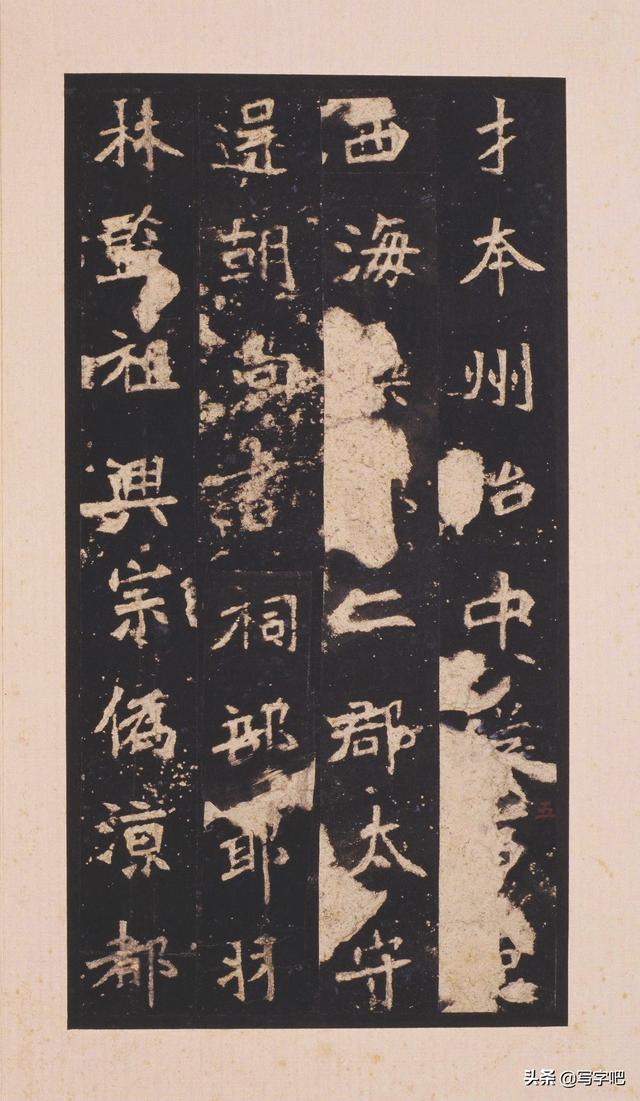 才本州治中
西海二郡太守
還朝書祠部郎羽
林監祖興宗偽涼都
五
头条 @写字吧